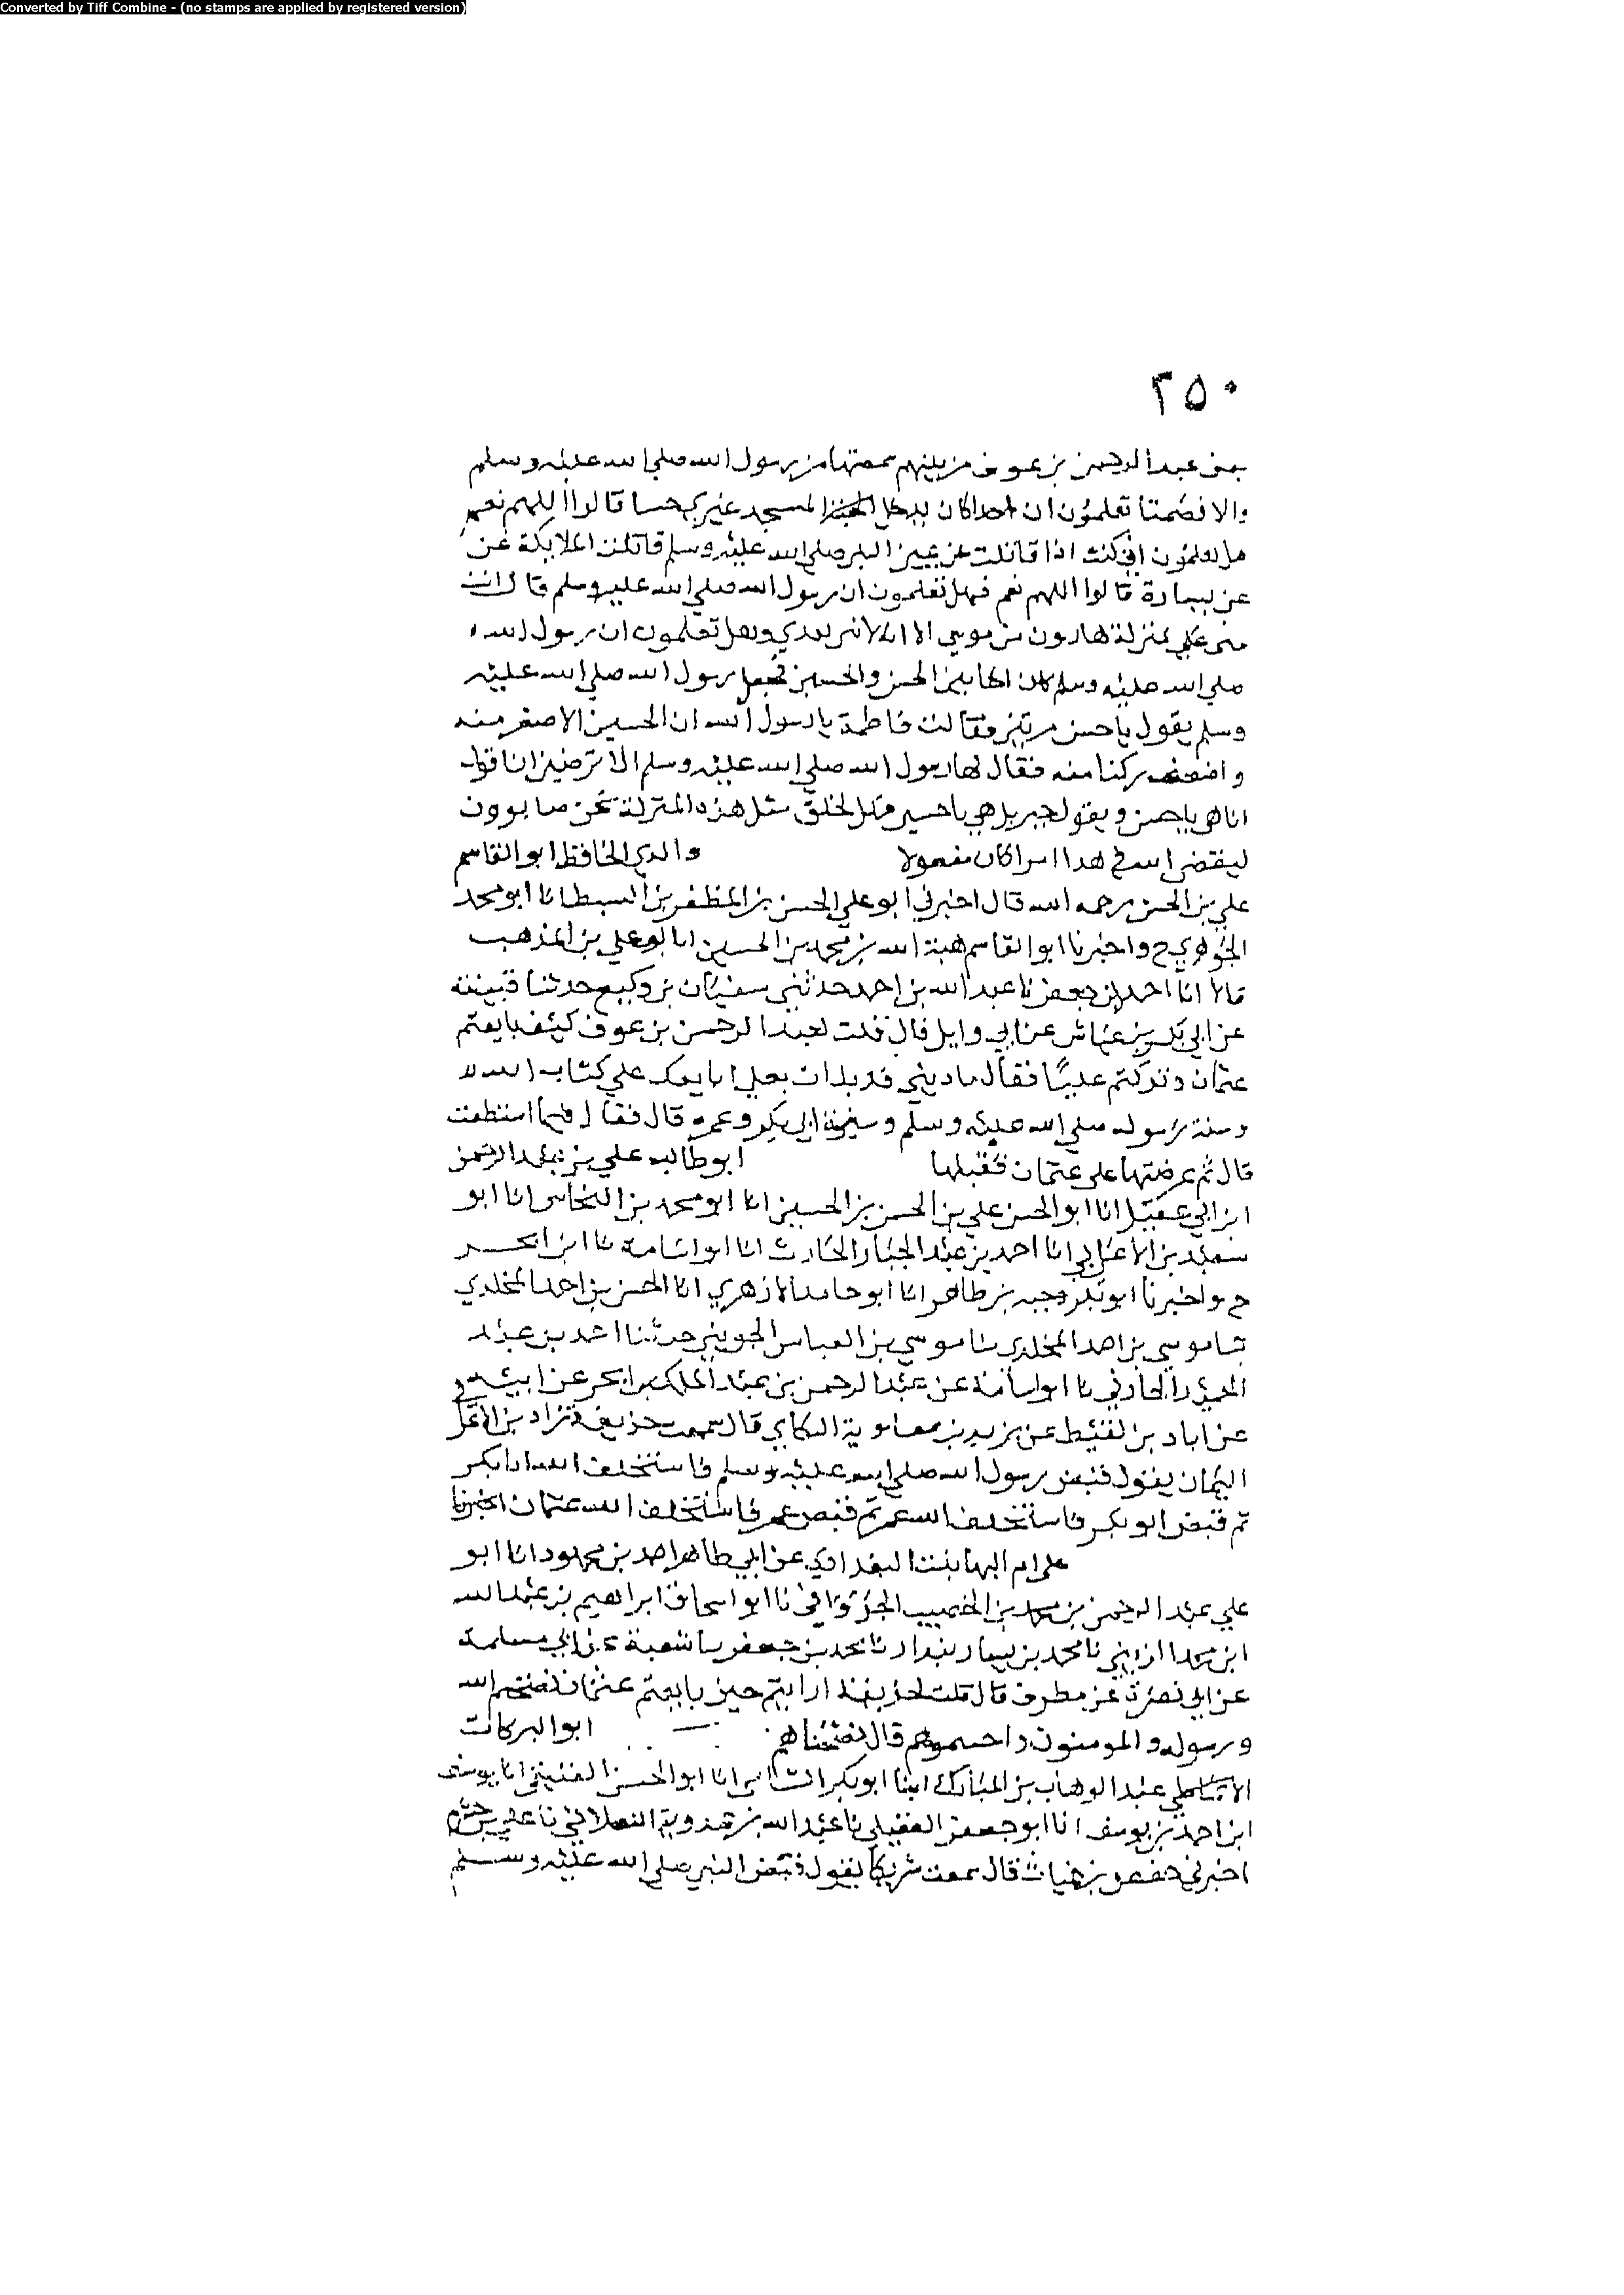 Converted by Tiff Combine - (no stamps are applied by registered version)
٢٥٠
عبد الرحمن بن عوف من بينهم سمعتها من رسول الله صلى الله عليه وسلم
والا فصمتا تعلمون ان احدا كان يدخل المسجد غيري جنبا قالوا اللهم نعم
هل تعلمون اني كنت اذا قاتلت عن يمين النبي صلى الله عليه وسلم قاتلت الملايكة عن
عن يساره قالوا اللهم نعم فهل تعلمون ان رسول الله صلى الله عليه وسلم قال انت
مني بمنزلة هارون من موسي الا انه لا نبي بعدي وهل تعلمون ان رسول الله
صلي الله عليه وسلم كان اخا بين الحسن والحسين فجعل رسول الله صلي الله عليه
وسلم يقول يا حسن مرتين فقالت فاطمة يا رسول الله ان الحسين الاصغر منه
واضعف ركنا منه فقال لها رسول الله صلي الله عليه وسلم الا ترضين ان اقول
انا هي يا حسن ويقول جبريل هي يا حسين فهل لخلق مثل هذه المنزلة نحن صابرون
ليقضي الله في هذا امرا كان مفعولا والدي الحافظ ابو القاسم
علي بن الحسن رحمه الله قال اخبرني ابو علي الحسن بن المظفر بن السبط انا ابو محمد
الجوهري ح واخبرنا ابو القاسم هبة الله بن محمد بن الحسين انا ابو علي بن المذهب
قالا انا احمد بن جعفر نا عبد الله بن احمد حدثني سفيان بن وكيع حدثنا قبيصة
عن ابي بكر بن عياش عن ابي وايل قال قلت لعبد الرحمن بن عوف كيف بايعتم
عثمان وتركتم عليا فقال ما ذنبي قد بدات بعلي ابايعك علي كتاب الله
وسنة رسوله صلي الله عليه وسلم وسيرة ابي بكر وعمر قال فقال فيما استطعت
قال ثم عرضتها علي عثمان فقبلها ابو طالب علي بن عبد الرحمن
ابن ابي عقيل انا ابو الحسن علي بن الحسن بن الحسين انا ابو محمد بن النحاس انا ابو
سعيد بن الاعرابي انا احمد بن عبد الجبار الحارث انا ابو اسامة نا ابن ابجر
ح واخبرنا ابو بكر وجيه بن طاهر انا ابو حامد الازهري انا الحسن بن احمد المخلدي
نا موسي بن احمد المخلدي نا موسي بن العباس الجويني حدثنا احمد بن عبد
الحميد الحارثي نا ابو اسامة عن عبد الرحمن بن عبد الملك بن ابجر عن ابيه
عن اياد بن لقيط عن يزيد بن معاوية البكاي قال سمعت حذيفة زاد بن الاعرابي
اليمان يقول قبض رسول الله صلي الله عليه وسلم فاستخلف الله ابا بكر
ثم قبض ابو بكر فاستخلف الله عمر ثم قبض عمر فاستخلف الله عثمان اخبرتنا
ام البها بنت البغدادي عن ابي طاهر احمد بن محمود انا ابو
علي عبد الرحمن بن محمد بن الخصيب نا ابو اسحاق ابراهيم بن عبد الله
ابن نا محمد بن بشار بندار نا محمد بن جعفر نا شعبة عن ابي مسلمة
عن ابي نضرة عن مطرف قال قلت لحذيفة ارايتم حين بايعتم عثمان الله
ورسوله والمومنون قال
ابو البركات
الانماطي عبد الوهاب بن المبارك انا ابو بكر انا ابو الحسن العتيقي انا يوسف
ابن احمد بن يوسف انا ابو جعفر العقيلي نا عبد الله بن نا علي بن خشرم
اخبرني حفص بن غياث قال سمعت شريكا يقول قبض النبي صلي الله عليه وسلم